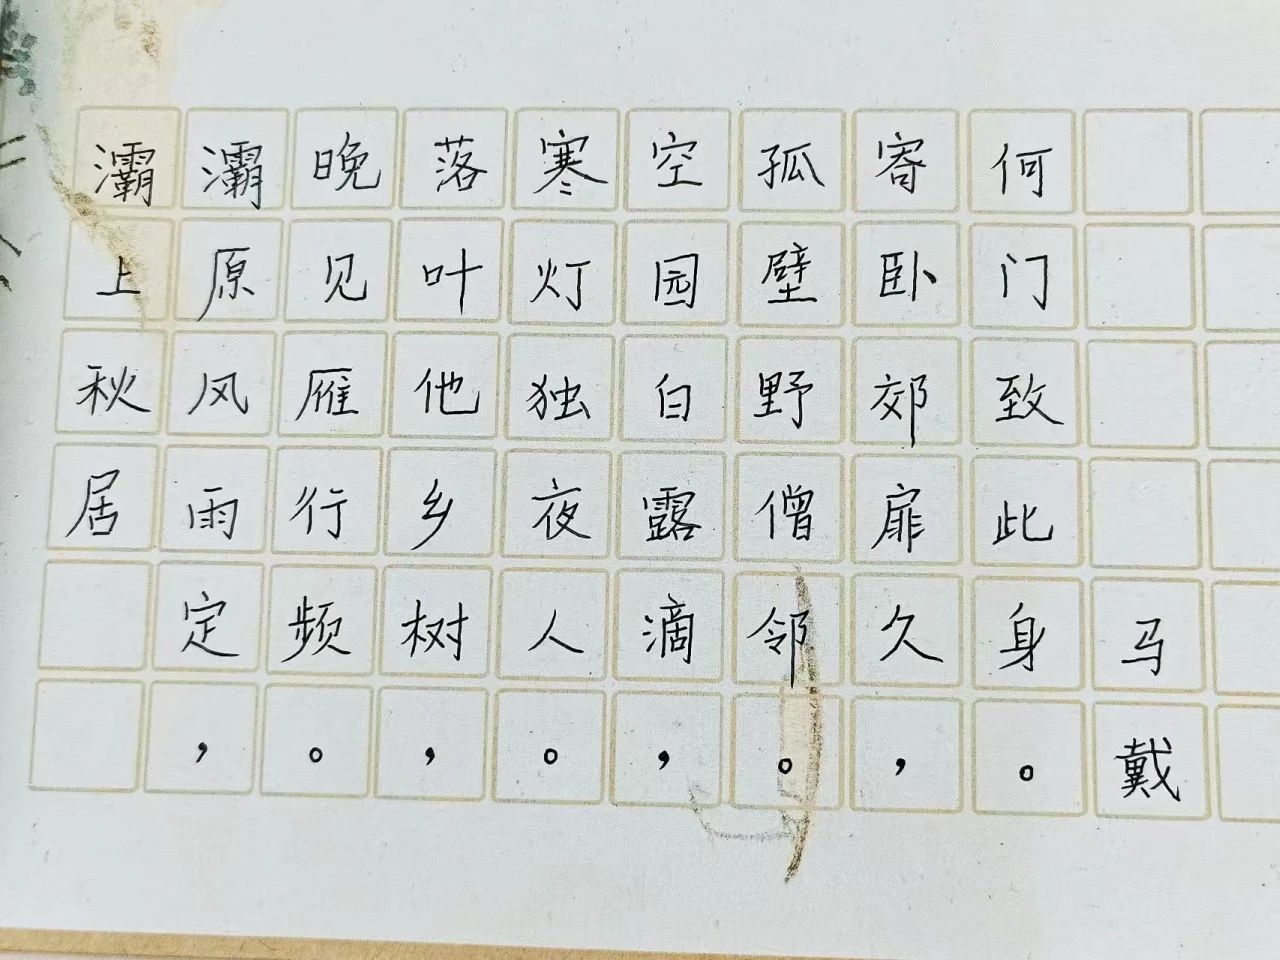 灞上秋居
灞原风雨定，
晚见雁行频。
落叶他乡树，
寒灯独夜人。
空园白露滴，
孤壁野僧邻。
寄卧郊扉久，
何门致此身。
马戴